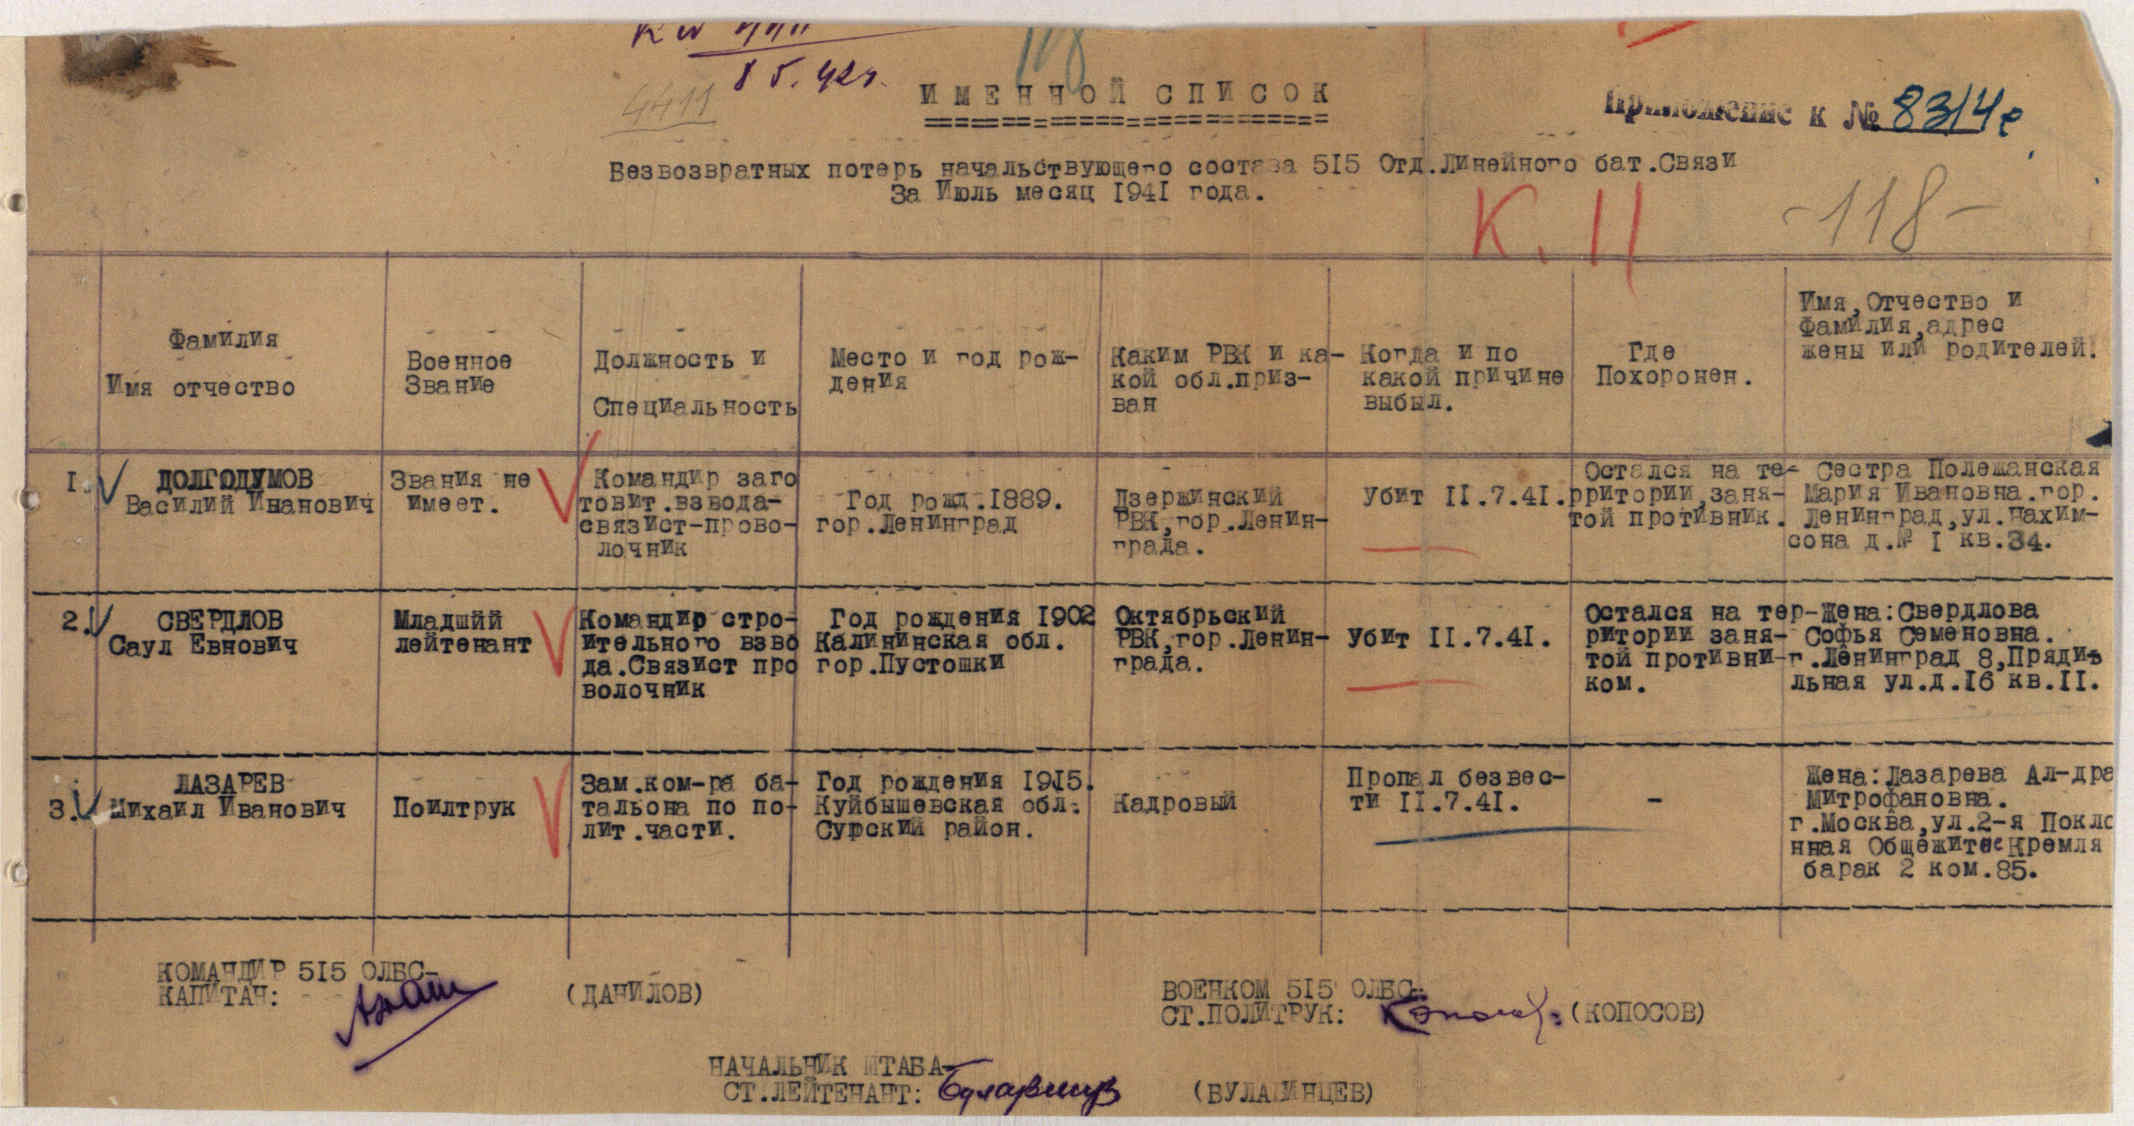 8 5. 42г.
4411
118
ИМЕННОЙ СПИСОК
Приложение к № 8314с
Безвозвратных потерь начальствующего состава 515 Отд.Линейного бат.Связи
За Июль месяц 1941 года.
К. 11
-118-
Фамилия
Имя отчество
Военное
Звание
Должность и
Специальность
Место и год рож-
дения
Каким РВК и ка-
кой обл.приз-
ван
Когда и по
какой причине
выбыл.
Где
Похоронен.
Имя,Отчество и
Фамилия,адрес
жены или родителей.
1.
ДОЛГОДУМОВ
Василий Иванович
Звания не
имеет.
Командир заго
товит.взвода-
связист-прово-
лочник
Год рожд.1889.
гор.Ленинград
Дзержинский
РВК,гор.Ленин-
града.
Убит 11.7.41.
Остался на те-
рритории,заня-
той противник.
Сестра Полежанская
Мария Ивановна.гор.
Ленинград,ул.Нахим-
сона д.№ 1 кв.34.
2.
СВЕРДЛОВ
Саул Евнович
Младший
лейтенант
Командир стро-
ительного взво
да.Связист про
волочник
Год рождения 1902
Калининская обл.
гор.Пустошки
Октябрьский
РВК,гор.Ленин-
града.
Убит 11.7.41.
Остался на тер-
ритории заня-
той противни-
ком.
Жена:Свердлова
Софья Семеновна.
г.Ленинград 8,Пряди-
льная ул.д.16 кв.11.
3.
ЛАЗАРЕВ
Михаил Иванович
Поилтрук
Зам.ком-ра ба-
тальона по по-
лит.части.
Год рождения 1915.
Куйбышевская обл.
Сурский район.
Кадровый
Пропал безвес-
ти 11.7.41.
-
Жена:Лазарева Ал-дра
Митрофановна.
г.Москва,ул.2-я Покло
нная Общежитие Кремля
барак 2 ком.85.
КОМАНДИР 515 ОЛБС-
КАПИТАН:
(ДАНИЛОВ)
ВОЕНКОМ 515 ОЛБС-
СТ.ПОЛИТРУК: Копосов (КОПОСОВ)
НАЧАЛЬНИК ШТАБА-
СТ.ЛЕЙТЕНАНТ:
(БУЛАВИНЦЕВ)